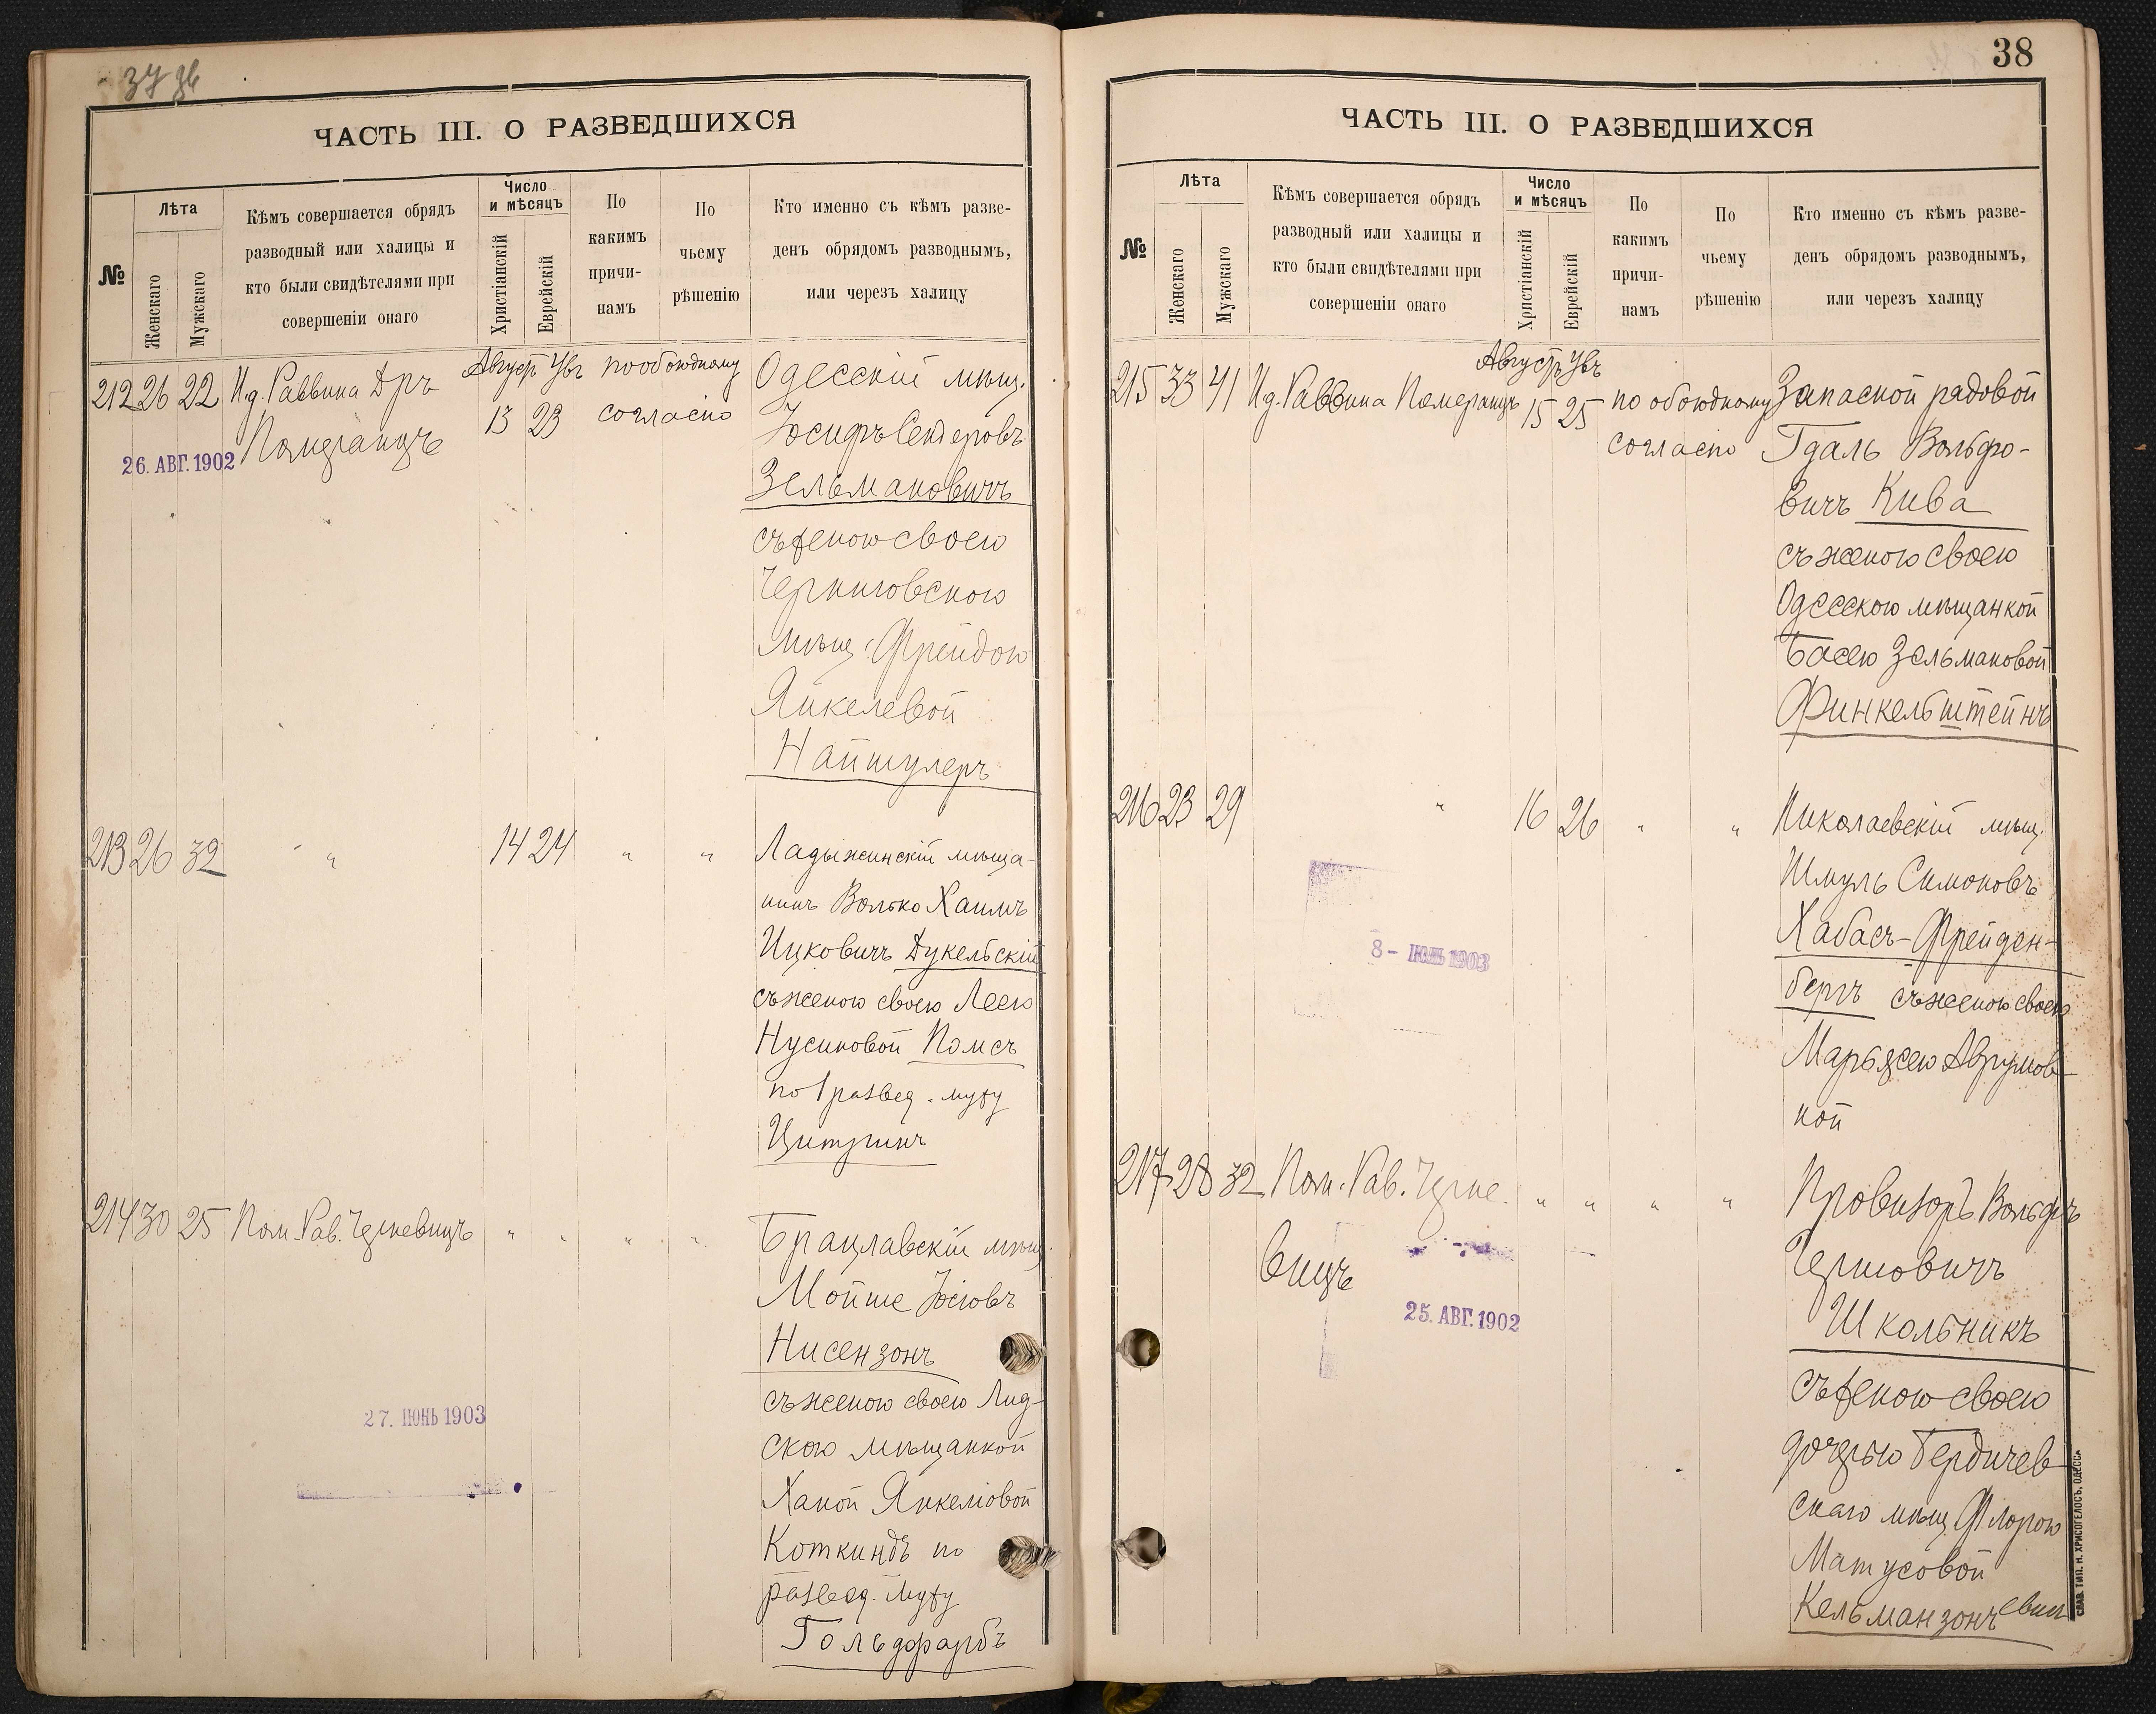 ЧАСТЬ III. О РАЗВЕДШИХСЯ
№
Лѣта
Женскаго
Мужскаго
Кѣмъ совершается обрядъ
разводный или халицы и
кто были свидѣтелями при
совершеніи онаго
Число
и мѣсяцъ
Христіанскій
Еврейскій
По
какимъ
причи-
намъ
По
чьему
рѣшенію
Кто именно съ кѣмъ разве-
денъ обрядомъ разводнымъ,
или черезъ халицу
212 26 22 И.д. Раввина Дръ
Померанцъ
26. АВГ. 1902
Август.
13 23
по обоюдному
согласію
Одесскій мѣщ.
Іосифъ Сендеровъ
Зельмановичъ
съ женою своею
Черниговскою
мѣщ. Фрейдою
Янкелевой
Найшулеръ
213 26 32 " 14 24 " "
Ладыжинскій мѣща-
нинъ Волько Хаимъ
Ицковичъ Дукельскій
съ женою своею Леею
Нусиновой Помсъ
по 1 развед. мужу
214 30 25 Пом. Рав. Черневицъ " " " "
Брацлавскій мѣщ.
Мойше Іосіовъ
Нисензонъ
съ женою своею Лид-
скою мѣщанкой
Ханой Янкеліовой
Коткиндъ по
развед. мужу
Гольдфарбъ
27. ІЮНЬ 1903
38
ЧАСТЬ III. О РАЗВЕДШИХСЯ
№
Лѣта
Женскаго
Мужскаго
Кѣмъ совершается обрядъ
разводный или халицы и
кто были свидѣтелями при
совершеніи онаго
Число
и мѣсяцъ
Христіанскій
Еврейскій
По
какимъ
причи-
намъ
По
чьему
рѣшенію
Кто именно съ кѣмъ разве-
денъ обрядомъ разводнымъ,
или черезъ халицу
215 33 41 И.д. Раввина Померанцъ
Августъ
15 25
по обоюдному
согласію
Запасной рядовой
Гдаль Вольфо-
вичъ Кива
съ женою своею
Одесскою мѣщанкой
Басею Зельмановой
Финкельштейнъ
216 23 29 " 16 26 " "
Николаевскій мѣщ.
Шмуль Симоновъ
Хабасъ-Фрейден-
бергъ съ женою своею
Марьясею Аврумов-
ной
8- ІЮЛЬ 1903
217 28 32 Пом. Рав. Черне-
вицъ
" " " "
Провизоръ Вольфъ
Гершовичъ
Школьникъ
съ женою своею
дочерью Бердичев-
скаго мѣщ. Флорою
Матусовой
Кельманзонъ
25. АВГ. 1902
СЛАВ. ТИП. Н. ХРИСОГЕЛОСЪ, ОДЕССА